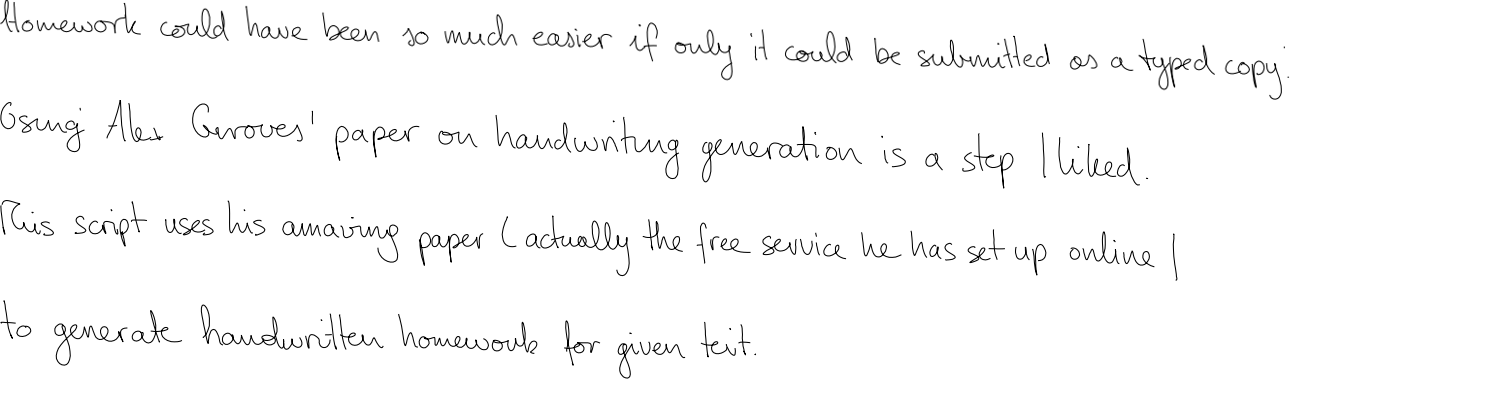 Homework could have been so much easier if only it could be submitted as a typed copy.
Using Alex Groves' paper on handwriting generation is a step I liked.
This script uses his amazing paper (actually the free service he has set up online)
to generate handwritten homework for given text.